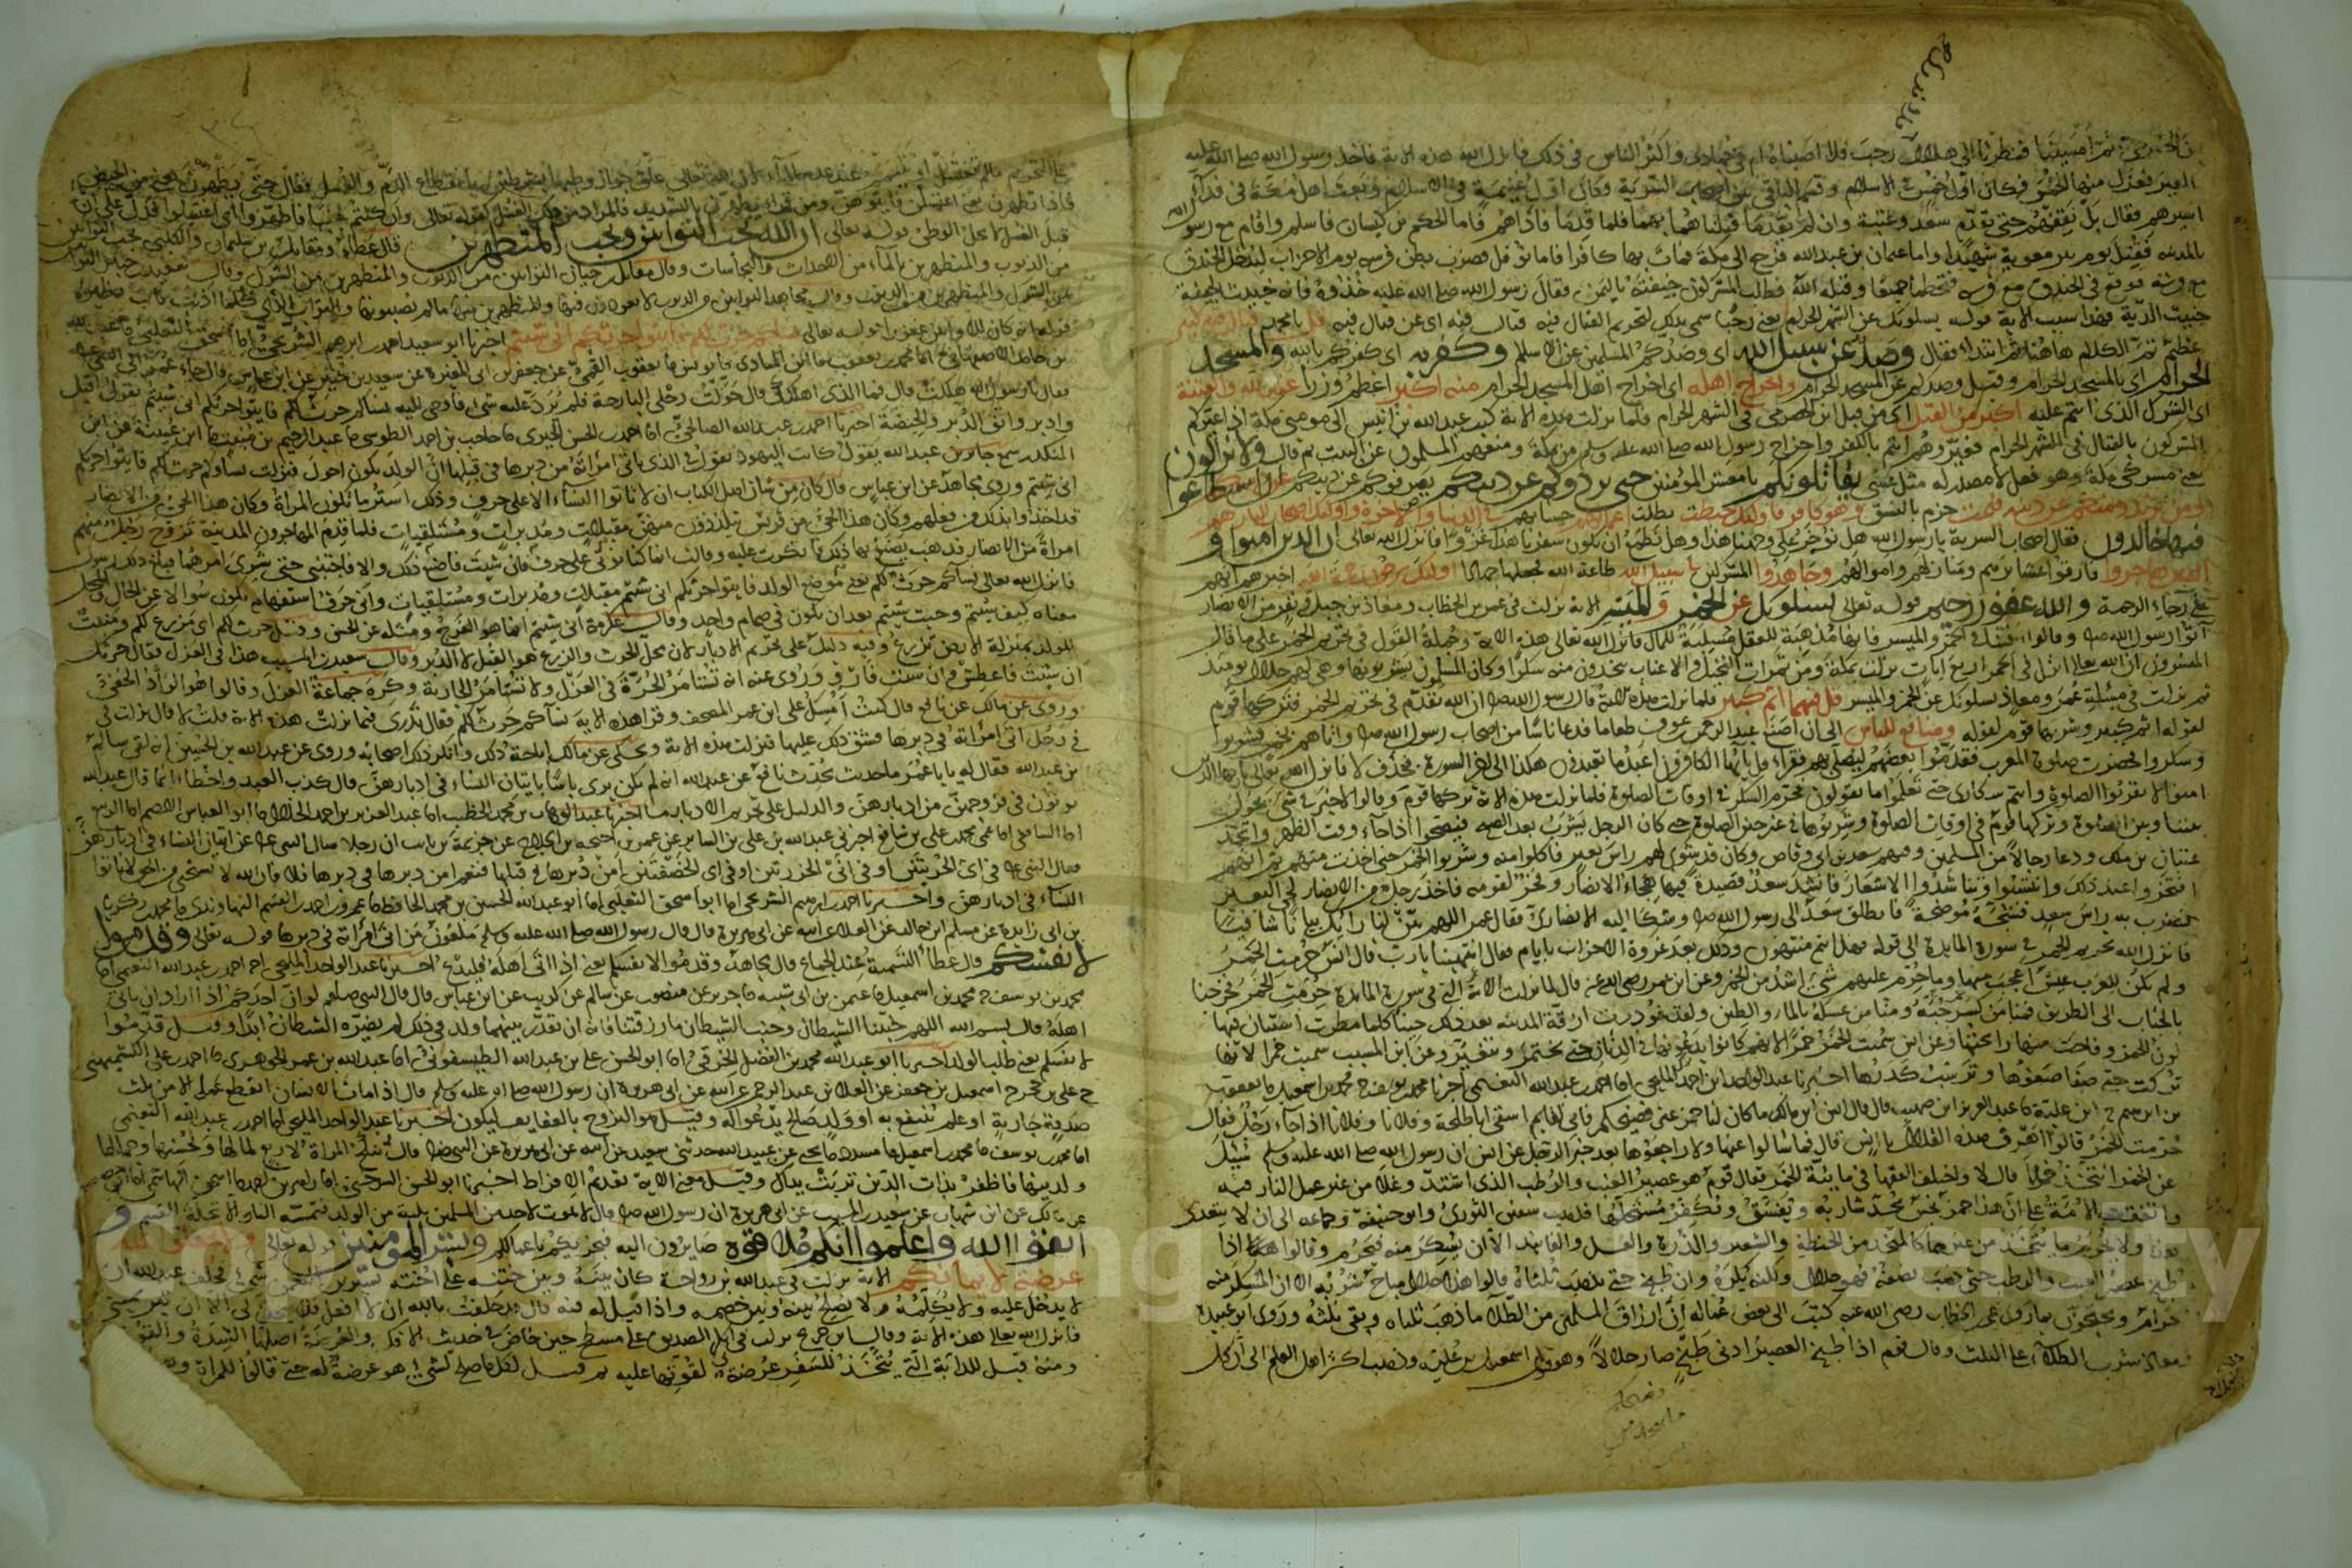 ثم امسينا فنظرنا الى هلال رجب فلا ندري افي رجب اصبناه ام في جمادى واكثر الناس في ذلك فانزل الله هذه الاية فاخذ رسول الله صلى الله عليه
العير فعزل منها الخمس فكان اول خمس في الاسلام وقسم الباقي بين اصحاب السرية وكان اول غنيمة في الاسلام وبعث اهل مكة في فداء
اسيرهم فقال بل نقفهم حتى يقدم سعد وعتبة وان لم يقدما قتلناهما بهما فلما قدما فاداهم فاما الحكم بن كيسان فاسلم واقام مع رسول الله
بالمدينة فقتل يوم بئر معونة شهيدا واما عثمان بن عبد الله فرجع الى مكة فمات بها كافرا فاما نوفل فضرب بطن فرسه يوم الاحزاب ليدخل الخندق
فوقع في الخندق مع فرسه فتحطما جميعا وقتله الله فطلب المشركون جيفته بالثمن فقال رسول الله صلى الله عليه خذوه فانه خبيث الجيفة
خبيث الدية فهذا سبب الاية قوله يسلونك عن الشهر الحرام يعني رجبا سمي بذلك لتحريم القتال فيه قتال فيه اي عن قتال فيه قل يا محمد قتال فيه كبير
عظيم تم الكلام هاهنا ثم ابتدا فقال وصد عن سبيل الله اي وصدكم المسلمين عن الاسلام وكفر به اي كفركم بالله والمسجد
الحرام اي بالمسجد الحرام وقيل وصدكم عن المسجد الحرام واخراج اهله اي اخراج اهل المسجد الحرام منه اكبر اعظم وزرا عند الله والفتنة
اي الشرك الذي انتم عليه اكبر من القتل اي من قتل ابن الحضرمي في الشهر الحرام فلما نزلت هذه الاية كتب عبد الله بن انيس الى مومني مكة اذا عيركم
المشركون بالقتال في الشهر الحرام فعيروهم انتم بالكفر واخراج رسول الله صلى الله عليه وسلم من مكة ومنعهم المسلمين عن البيت ثم قال ولا يزالون
يعني مشركي مكة وهو فعل لا مصدر له مثل عسى يقاتلونكم يا معشر المؤمنين حتى يردوكم عن دينكم يصرفوكم عن دينكم ان استطاعوا
ومن يرتدد منكم عن دينه فيمت جزم بالنسق وهو كافر فاولئك حبطت بطلت اعمالهم حسناتهم في الدنيا والاخرة واولئك اصحاب النار هم
فيها خالدون فقال اصحاب السرية يا رسول الله هل نؤجر على وجهنا هذا وهل نطمع ان يكون سفرنا هذا غزوا فانزل الله تعالى ان الذين امنوا و
الذين هاجروا فارقوا عشايرهم ومنازلهم واموالهم وجاهدوا المشركين في سبيل الله طاعة الله فجعلها جهادا اولئك يرجون رحمة الله اخبرهم انهم
على رجاء الرحمة والله غفور رحيم قوله تعالى يسلونك عن الخمر والميسر الاية نزلت في عمر بن الخطاب ومعاذ بن جبل ونفر من الانصار
اتوا رسول الله صلى وقالوا افتنا في الخمر والميسر فانهما مذهبة للعقل مسلبة للمال فانزل الله تعالى هذه الاية وجملة القول في تحريم الخمر على ما قال
المفسرون ان الله تعالى انزل في الخمر اربع ايات نزلت بمكة ومن ثمرات النخيل والاعناب تتخذون منه سكرا وكان المسلمون يشربونها وهي لهم حلال يومئذ
ثم نزلت في مسئلة عمر ومعاذ يسلونك عن الخمر والميسر قل فيهما اثم كبير فلما نزلت هذه الاية قال رسول الله صلى ان الله تقدم في تحريم الخمر فتركها قوم
لقوله اثم كبير وشربها قوم لقوله ومنافع للناس الى ان صنع عبد الرحمن بن عوف طعاما فدعا ناسا من اصحاب رسول الله صلى واتاهم بخمر فشربوا
وسكروا فحضرت صلوة المغرب فقدموا بعضهم ليصلي بهم فقرا قل يايها الكافرون اعبد ما تعبدون هكذا الى اخر السورة بحذف لا فانزل الله تعالى يا ايها الذين
امنوا لا تقربوا الصلوة وانتم سكارى حتى تعلموا ما تقولون فحرم السكر في اوقات الصلوة فلما نزلت هذه الاية تركها قوم وقالوا لا خير في شي يحول
بيننا وبين الصلوة وتركها قوم في اوقات الصلوة وشربوها في غير حين الصلوة حتى كان الرجل يشرب بعد الصبح فيصحوا اذا جاء وقت الظهر واتخذ
عتبان بن ملك ودعا رجالا من المسلمين وفيهم سعد بن ابي وقاص وكان قد شوى لهم راس بعير فاكلوا منه وشربوا الخمر حتى اخذت منهم ثم انهم
افتخروا عند ذلك وانتسبوا وتناشدوا الاشعار فانشد سعد قصيدة فيها هجاء الانصار وفخر لقومه فاخذ رجل من الانصار لحي البعير
فضرب به راس سعد فشجه موضحة فانطلق سعد الى رسول الله صلى وشكا اليه الانصاري فقال عمر اللهم بين لنا رايك بيانا شافيا
فانزل الله تحريم الخمر في سورة المايدة الى قوله فهل انتم منتهون وذلك بعد غزوة الاحزاب بايام فقال انتهينا يا رب قال انس حرمت الخمر
ولم يكن للعرب عيش اعجب منها وما حرم عليهم شيئ اشد من الخمر وعن ابن عمر رضي الله عنه قال لما نزلت الاية التي في سورة المايدة حرمت الخمر فخرجنا
بالحباب الى الطريق فمنا من كسر حبه ومنا من غسله بالماء والطين ولقد غودرت ازقة المدينة بعد ذلك حينا كلما مطرت استبان فيها
لون الخمر وفاحت منها رايحتها وعن انس سميت الخمر خمرا لانهم كانوا يدعونها في الدنان حتى تختمر وتتغير وعن ابن المسيب سميت خمرا لانها
تركت حتى صفا صفوها وترسبت كدرها اخبرنا عبد الواحد بن احمد المليحي انا احمد بن عبد الله النعيمي اخبرنا محمد بن يوسف ح محمد بن اسمعيل ما يعقوب
بن ابرهيم ح ابن علية ما عبد العزيز ابن صهيب قال قال انس ابن مالك ما كان لنا خمر غير فضيخكم فاني لقايم اسقي ابا طلحة وفلانا وفلانا اذا جاء رجل فقال
حرمت الخمر قالوا اهرق هذه القلال يا انس قال فما سالوا عنها ولا راجعوها بعد خبر الرجل عن انس ان رسول الله صلى الله عليه وسلم سئل
عن الخمر اتتخذ خلا قال لا واختلف الفقها في مائية الخمر فقال قوم هو عصير العنب والرطب الذي اشتد وغلا من غير عمل النار فيه
واتفقت الامة على ان هذا خمر نجس يحد شاربه ويفسق ويكفر مستحلها فذهب سفين الثوري وابو حنيفة وجماعه الى ان لا يتعدى
هذا ولا يحرم ما يتخذ من غيرهما كالمتخذ من الحنطة والشعير والذرة والعسل والفانيذ الا ان يسكر منه فيحرم وقالوا اذا
طبخ عصير العنب والرطب حتى ذهب نصفه فهو حلال ولكنه يكره وان طبخ حتى يذهب ثلثاه قالوا هذا حلال مباح شربه الا ان المسكر منه
حرام ويحتجون بما روي عن عمر بن الخطاب رضي الله عنه كتب الى بعض عماله ان ارزق المسلمين من الطلا ما ذهب ثلثاه وبقي ثلثه وروى ابو عبيدة
ومعاذ شرب الطلاء على الثلث وقال قوم اذا طبخ العصير ادنى طبخ صار حلالا وهو قول اسمعيل بن علية وذهب اكثر اهل العلم الى ان كل
فاذا تطهرن يعني اغتسلن فاتوهن
قبل الغسل لا يحل الوطئ قوله تعالى ان الله يحب التوابين ويحب المتطهرين قال عطاء ومقاتل بن سليمان والكلبي يحب التوابين
من الذنوب والمتطهرين بالماء من الاحداث والنجاسات وقال مقاتل بن حيان التوابين من الذنوب والمتطهرين من الشرك وقال سعيد بن جبير
من الشرك والمتطهرين من الذنوب وقال مجاهد التوابين من الذنوب لا يعودون فيها والمتطهرين منها لم يصيبوها
قوله تعالى نساؤكم حرث لكم فاتوا حرثكم انى شئتم اخبرنا ابو سعيد احمد بن ابرهيم الشريحي انا ابو اسحق الثعلبي
فقال يا رسول الله هلكت قال فما الذي اهلكك قال حولت رحلي البارحة فلم يرد عليه شيئا فاوحى اليه نساؤكم حرث لكم فاتوا حرثكم انى شئتم يقول اقبل
وادبر واتق الدبر والحيضة اخبرنا احمد بن عبد الله الصالحي انا احمد بن الحسن الحيري ما حاجب بن احمد الطوسي ما عبد الرحيم بن منيب ما ابن عيينة عن ابن
المنكدر سمع جابر بن عبد الله يقول كانت اليهود تقول في الذي ياتي امراته من دبرها في قبلها ان الولد يكون احول فنزلت نساؤكم حرث لكم فاتوا حرثكم
انى شئتم وروى مجاهد عن ابن عباس قال كان من شان اهل الكتاب ان لا ياتوا النساء الا على حرف وذلك استر ما تكون المراة وكان هذا الحي من الانصار
قد اخذوا بذلك من فعلهم وكان هذا الحي من قريش يتلذذون منهن مقبلات ومدبرات ومستلقيات فلما قدم المهاجرون المدينة تزوج رجل منهم
امراة من الانصار فذهب يصنع بها ذلك فانكرت عليه وقالت انما كنا نؤتى على حرف فان شئت فاصنع ذلك والا فاجتنبني حتى شري امرهما فبلغ ذلك رسول
فانزل الله تعالى نساؤكم حرث لكم يعني موضع الولد فاتوا حرثكم انى شئتم مقبلات ومدبرات ومستلقيات وانى حرف استفهام يكون سؤالا عن الحال والمحل
معناه كيف شئتم وحيث شئتم بعد ان يكون في صمام واحد وقال عكرمة انى شئتم انما هو الفرج ومثله عن الحسن وقيل حرث لكم اي مزرع لكم ومنبت
للولد بمنزلة الارض تزرع وفيه دليل على تحريم الادبار لان محل الحرث والزرع هو القبل لا الدبر وقال سعيد بن المسيب هذا في العزل فقال حرثك
ان شئت فاعطش وان شئت فارو وروي عنه انه تستامر الحرة في العزل ولا تستامر الجارية وكره جماعة العزل وقالوا هو الواد الخفي
وروى عن مالك عن نافع قال كنت امسك على ابن عمر المصحف وقرا هذه الاية نساؤكم حرث لكم فقال تدري فيما نزلت هذه الاية قلت لا قال نزلت في
في رجل اتى امراته في دبرها فشق ذلك عليها فنزلت هذه الاية وحكي عن مالك اباحة ذلك وانكر ذلك اصحابه وروى عن عبد الله بن الحسن انه لقي سالم
بن عبد الله فقال له يا با عمر ما حديث يحدث نافع عن عبد الله انه لم يكن يرى باسا باتيان النساء في ادبارهن فقال كذب العبد واخطا انما قال عبد الله
يؤتون في فروجهن من ادبارهن والدليل على تحريم الادبار ما اخبرنا عبد الوهاب بن محمد الخطيب انا عبد العزيز بن احمد الخلال انا ابو العباس الاصم انا الربيع
انا الشافعي انا عمي محمد بن علي بن شافع اخبرني عبد الله بن علي بن السايب عن عمرو بن احيحة بن الجلاح عن خزيمة بن ثابت ان رجلا سال النبي عن اتيان النساء في ادبارهن
فقال النبي في اي الخربتين او في اي الخرزتين او في اي الخصفتين امن دبرها في قبلها فنعم امن دبرها في دبرها فلا فان الله لا يستحيي من الحق لا تاتوا
النساء في ادبارهن واخبرنا احمد بن ابرهيم الشريحي انا ابو اسحق الثعلبي انا ابو عبد الله الحسين بن محمد الحافظ ما عمر بن احمد بن القسم النهاوندي ما محمد بن زكريا
عن مسلم بن خالد عن العلاء عن ابيه عن ابي هريرة قال قال رسول الله صلى الله عليه وسلم ملعون من اتى امراة في دبرها قوله تعالى وقدموا
لانفسكم قال عطاء التسمية عند الجماع قال مجاهد وقدموا لانفسكم يعني اذا اتى اهله فليدع اخبرنا عبد الواحد المليحي انا احمد بن عبد الله النعيمي انا
محمد بن يوسف ح محمد بن اسمعيل ما عثمن بن ابي شيبه ما جرير عن منصور عن سالم عن كريب عن ابن عباس قال قال النبي صلعم لو ان احدكم اذا اراد ان ياتي
اهله قال بسم الله اللهم جنبنا الشيطان وجنب الشيطان ما رزقتنا فانه ان يقدر بينهما ولد في ذلك لم يضره الشيطان ابدا وقيل قدموا
لانفسكم يعني طلب الولد اخبرنا ابو عبد الله محمد بن الفضل الخرقي انا ابو الحسن علي بن عبد الله الطيسفوني انا عبد الله بن عمر الجوهري ما احمد بن علي الكشميهني
ح علي بن حجر ح اسمعيل بن جعفر عن العلاء بن عبد الرحمن عن ابيه عن ابي هريرة ان رسول الله صلى الله عليه وسلم قال اذا مات الانسان انقطع عمله الا من ثلث
صدقة جارية او علم ينتفع به او ولد صالح يدعو له وقيل هو التزوج بالعفايف ليكون اخبرنا عبد الواحد المليحي انا احمد بن عبد الله النعيمي
انا محمد بن يوسف ما محمد بن اسمعيل ما مسدد ما يحيى عن عبيد الله حدثني سعيد عن ابيه عن ابي هريرة عن النبي صلى قال تنكح المراة لاربع لمالها ولحسبها وجمالها
ولدينها فاظفر بذات الدين تربت يداك وقيل معنى الاية تقديم الافراط اخبرنا ابو الحسن السرخسي
عن مالك عن ابن شهاب عن سعيد بن المسيب عن ابي هريرة ان رسول الله صلى قال لا يموت لاحد من المسلمين ثلثة من الولد فتمسه النار الا تحلة القسم و
اتقوا الله واعلموا انكم ملاقوه صايرون اليه فيجزيكم باعمالكم وبشر المومنين قوله تعالى ولا تجعلوا الله
عرضة لايمانكم الاية نزلت في عبد الله بن رواحة كان بينه وبين ختنه على اخته بشير بن النعمن شيئ فحلف عبد الله ان
لا يدخل عليه ولا يكلمه ولا يصلح بينه وبين خصمه واذا قيل له فيه قال قد حلفت بالله ان لا افعل فلا يحل لي الا ان تبر يميني
فانزل الله تعالى هذه الاية وقال ابن جريج نزلت في ابي بكر الصديق على مسطح حين خاض في حديث الافك والعرضة اصلها الشدة والقوة
ومنه قيل للدابة التي يتخذ للسفر عرضة لقوتها عليه ثم قيل لكل ما يصلح لشيئ هو عرضة له حتى قالوا للمراة